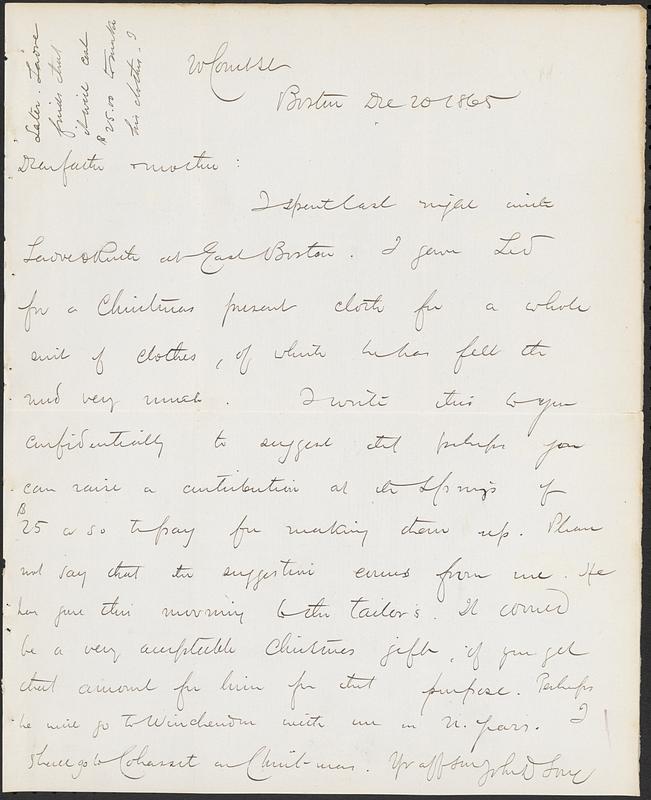 Later. Lawe
finds that
it will cost
$25.00 to make
his clothes. J
W Court St
Boston Dec 20 1865
Dear father & mother:
I spent last night with
Lawe & Ruth at East Boston. I gave
for a Christmas present cloth for a whole
suit of clothes, of which he has felt the
need very much. I write this to you
confidentially to suggest that perhaps you
can raise a contribution at the Springs of
$25 or so to pay for making them up. Please
not say that the suggestion comes from me. He
has gone this morning to the tailor's. It would
be a very acceptable Christmas gift, if you get
that amount for him for that purpose. Perhaps
he will go to Winchendon with me on N. Years. I
shall go to Cohasset on Christmas. Yr aff son John D Long